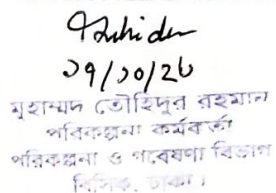 ১৭/১০/২৮
মুহাম্মদ তৌহিদুর রহমান
পরিকল্পনা কর্মকর্তা
পরিকল্পনা ও গবেষণা বিভাগ
বিসিক, ঢাকা।